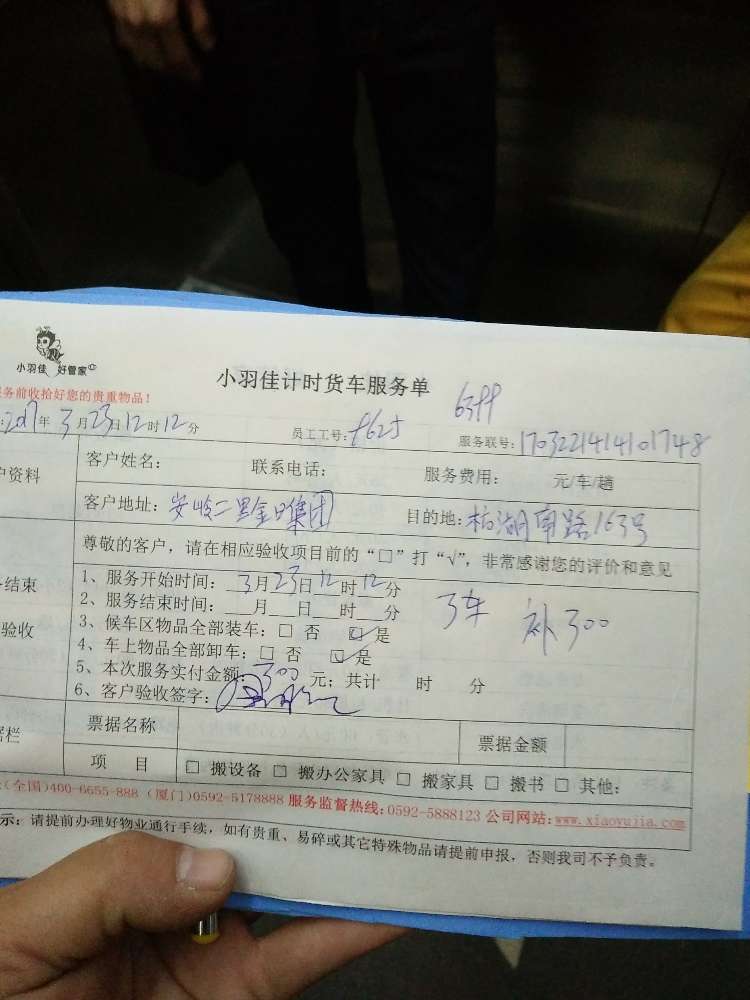 小羽佳 好管家
小羽佳计时货车服务单
务前收拾好您的贵重物品！
6399
2017年3月23日12时12分 员工工号: 8625 服务联号: 1703221414101748
户资料
客户姓名: 联系电话: 服务费用: 元/车/趟
客户地址: 安岭二里金日集团 目的地: 柏湖南路163号
尊敬的客户，请在相应验收项目前的“□”打“√”，非常感谢您的评价和意见
结束
验收
1、服务开始时间: 3月23日12时12分
2、服务结束时间: 月 日 时 分
3车 补300
3、候车区物品全部装车: □ 否 ☑ 是
4、车上物品全部卸车: □ 否 ☑ 是
5、本次服务实付金额: 300 元; 共计 时 分
6、客户验收签字:
据栏
票据名称 票据金额
项 目 □ 搬设备 □ 搬办公家具 □ 搬家具 □ 搬书 □ 其他:
(全国)400-6655-888 (厦门)0592-5178888 服务监督热线: 0592-5888123 公司网站: www.xiaoyujia.com
示: 请提前办理好物业通行手续，如有贵重、易碎或其它特殊物品请提前申报，否则我司不予负责。